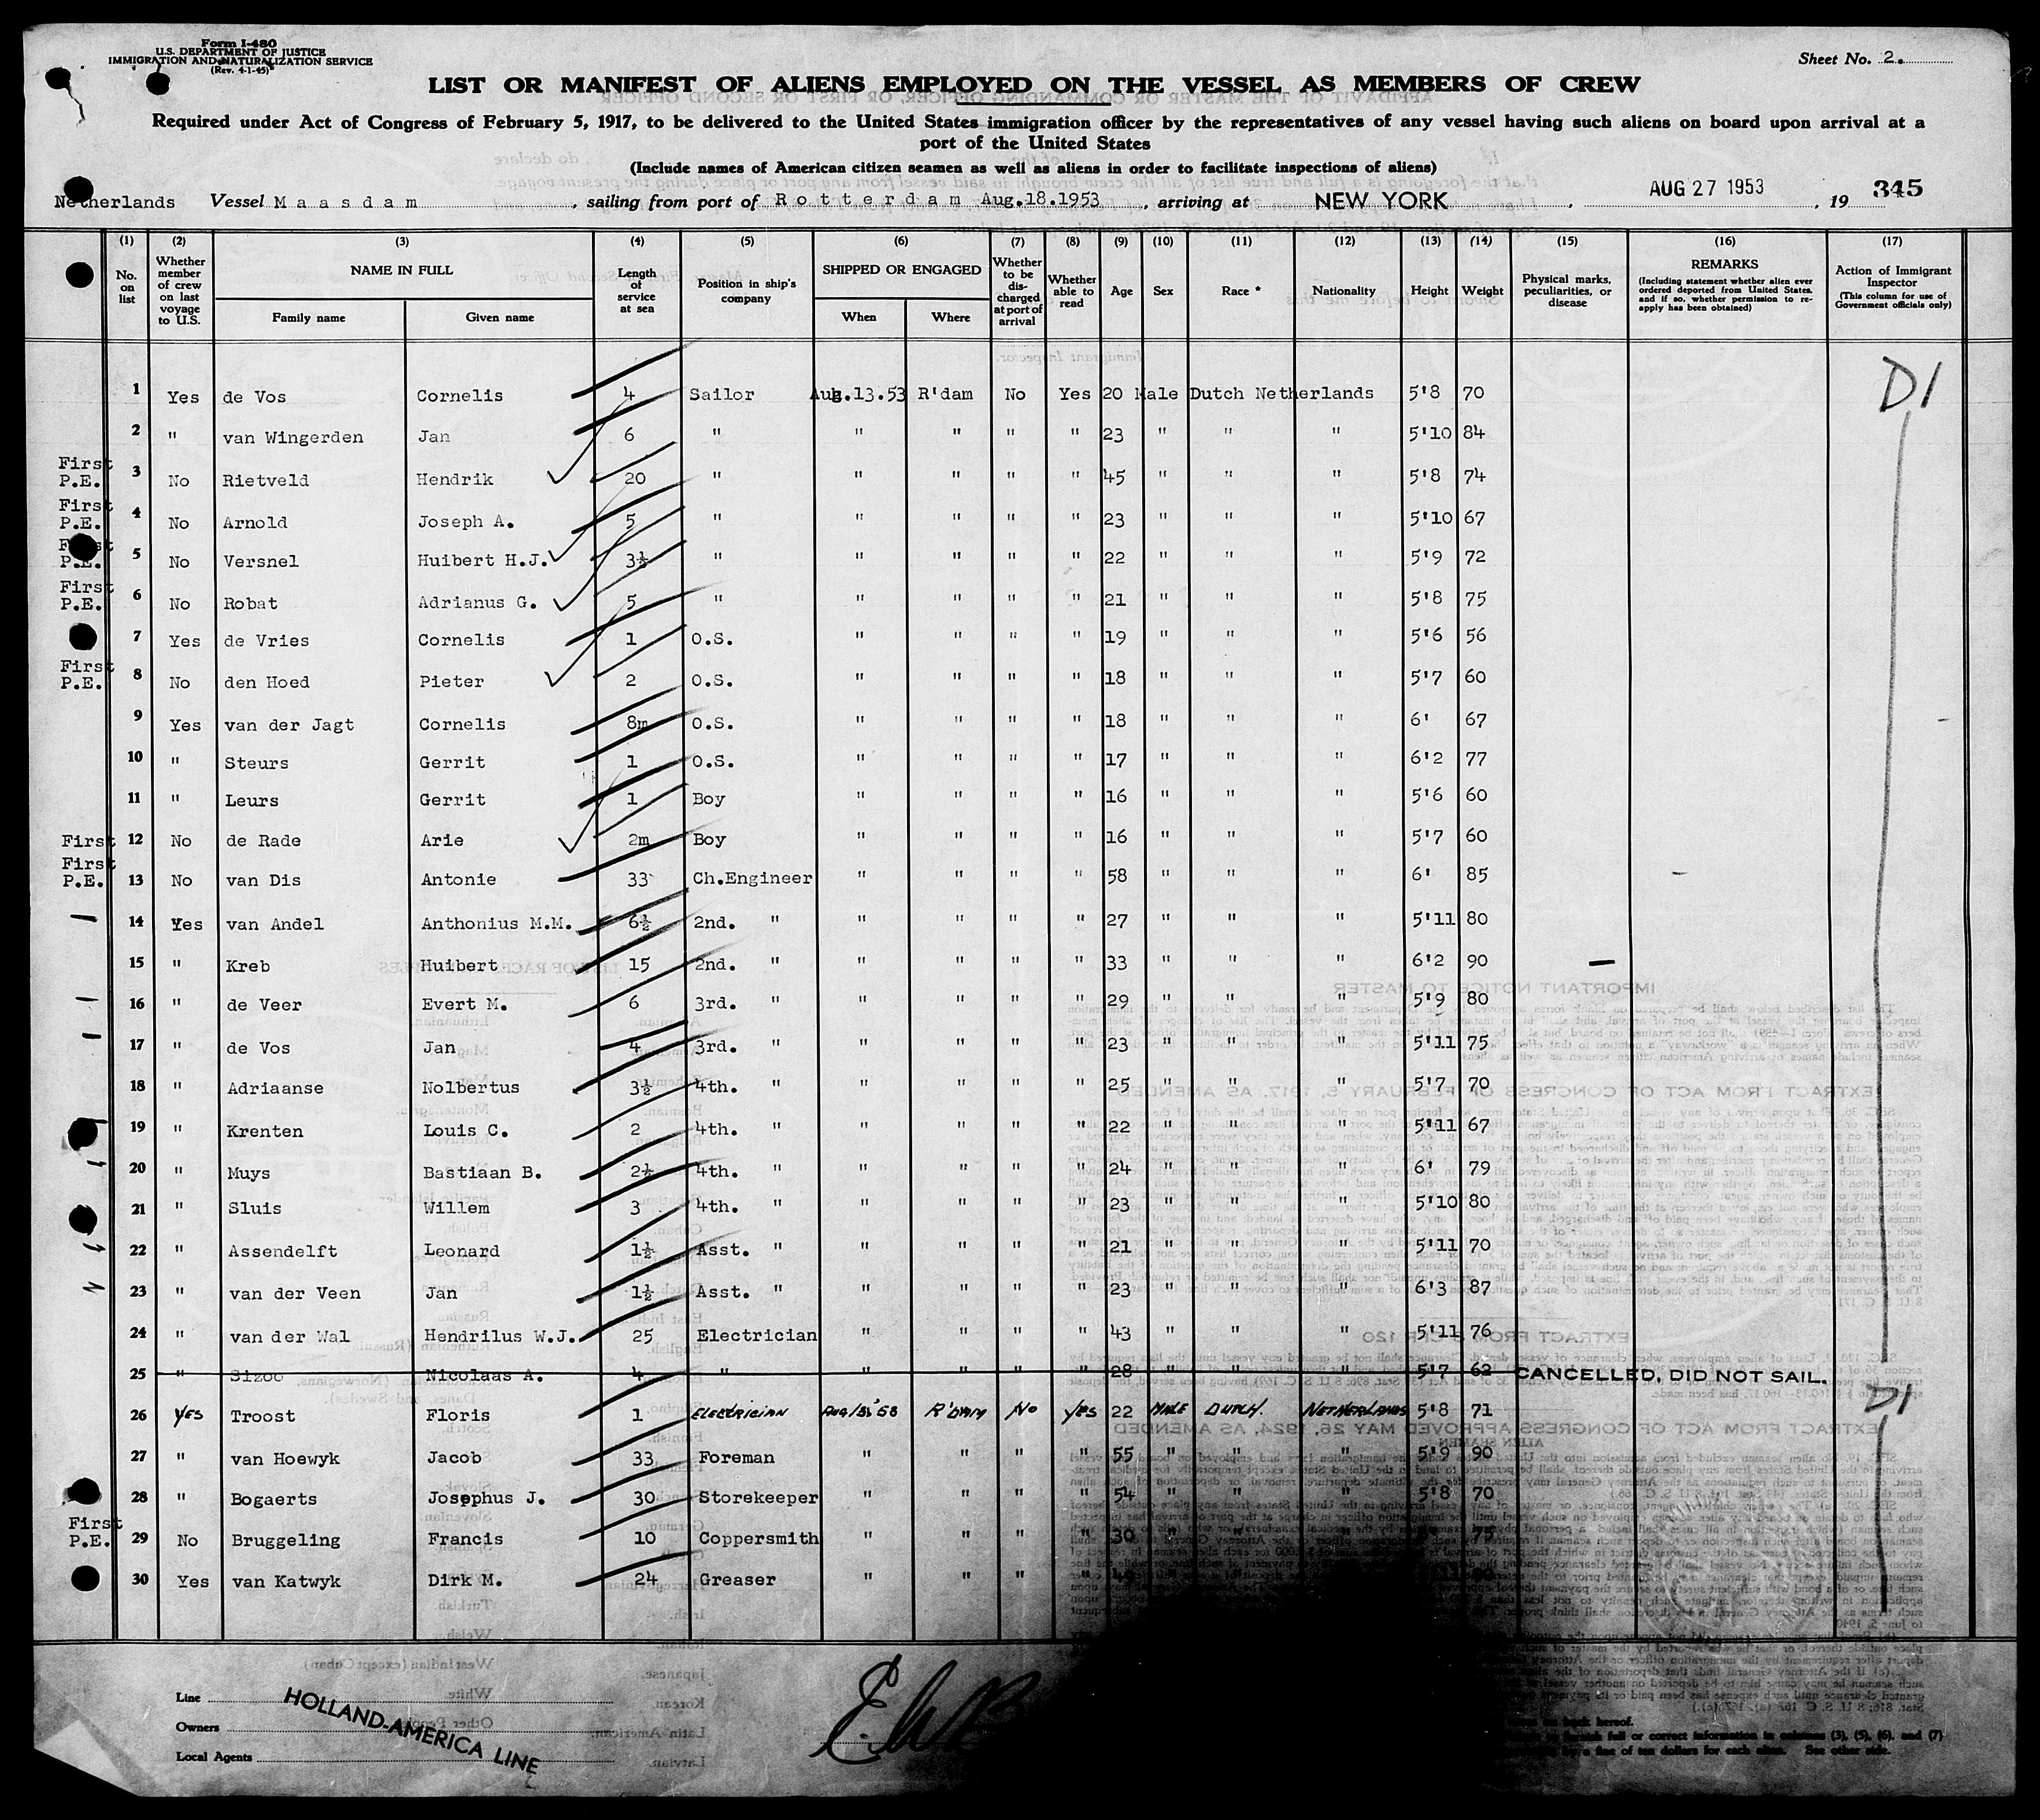 Form I-480
U.S. DEPARTMENT OF JUSTICE
IMMIGRATION AND NATURALIZATION SERVICE
(Rev. 4-1-45)
Sheet No. 2.
LIST OR MANIFEST OF ALIENS EMPLOYED ON THE VESSEL AS MEMBERS OF CREW
Required under Act of Congress of February 5, 1917, to be delivered to the United States immigration officer by the representatives of any vessel having such aliens on board upon arrival at a
port of the United States
(Include names of American citizen seamen as well as aliens in order to facilitate inspections of aliens)
Netherlands Vessel Maasdam, sailing from port of Rotterdam Aug.18.1953, arriving at NEW YORK, AUG 27 1953, 19 345
(1) (2) (3) (4) (5) (6) (7) (8) (9) (10) (11) (12) (13) (14) (15) (16) (17)
No. on list | Whether member of crew on last voyage to U.S. | NAME IN FULL Family name Given name | Length of service at sea | Position in ship's company | SHIPPED OR ENGAGED When Where | Whether to be discharged at port of arrival | Whether able to read | Age | Sex | Race * | Nationality | Height | Weight | Physical marks, peculiarities, or disease | REMARKS (Including statement whether alien ever ordered deported from United States, and if so, whether permission to reapply has been obtained) | Action of Immigrant Inspector (This column for use of Government officials only)
1 Yes de Vos Cornelis 4 Sailor Aug.13.53 R'dam No Yes 20 Male Dutch Netherlands 5'8 70 D1
2 " van Wingerden Jan 6 " " " " " 23 " " " 5'10 84
First P.E. 3 No Rietveld Hendrik 20 " " " " " 45 " " " 5'8 74
First P.E. 4 No Arnold Joseph A. 5 " " " " " 23 " " " 5'10 67
First P.E. 5 No Versnel Huibert H.J. 3½ " " " " " 22 " " " 5'9 72
First P.E. 6 No Robat Adrianus G. 5 " " " " " 21 " " " 5'8 75
7 Yes de Vries Cornelis 1 O.S. " " " " 19 " " " 5'6 56
First P.E. 8 No den Hoed Pieter 2 O.S. " " " " 18 " " " 5'7 60
9 Yes van der Jagt Cornelis 8m O.S. " " " " 18 " " " 6' 67
10 " Steurs Gerrit 1 O.S. " " " " 17 " " " 6'2 77
11 " Leurs Gerrit 1 Boy " " " " 16 " " " 5'6 60
First 12 No de Rade Arie 2m Boy " " " " 16 " " " 5'7 60
First P.E. 13 No van Dis Antonie 33 Ch.Engineer " " " " 58 " " " 6' 85
14 Yes van Andel Anthonius M.M. 6½ 2nd. " " " " " 27 " " " 5'11 80
15 " Kreb Huibert 15 2nd. " " " " " 33 " " " 6'2 90
16 " de Veer Evert M. 6 3rd. " " " " " 29 " " " 5'9 80
17 " de Vos Jan 4 3rd. " " " " " 23 " " " 5'11 75
18 " Adriaanse Nolbertus 3½ 4th. " " " " " 25 " " " 5'7 70
19 " Krenten Louis C. 2 4th. " " " " " 22 " " " 5'11 67
20 " Muys Bastiaan B. 2½ 4th. " " " " " 24 " " " 6' 79
21 " Sluis Willem 3 4th. " " " " " 23 " " " 5'10 80
22 " Assendelft Leonard 1½ Asst. " " " " " 21 " " " 5'11 70
23 " van der Veen Jan 1½ Asst. " " " " " 23 " " " 6'3 87
24 " van der Wal Hendrilus W.J. 25 Electrician " " " " 43 " " " 5'11 76
25 " Sizoo Nicolaas A. 4 " " " " " 28 " " " 5'7 62 CANCELLED, DID NOT SAIL.
26 YES Troost Floris 1 ELECTRICIAN R'DAM NO YES 22 MALE DUTCH. NETHERLANDS 5'8 71 D1
27 " van Hoewyk Jacob 33 Foreman " " " " 55 " " " 5'9 90
28 " Bogaerts Josephus J. 30 Storekeeper " " " " 54 " " " 5'8 70
First P.E. 29 No Bruggeling Francis 10 Coppersmith " " " " 30 " " " 75
30 Yes van Katwyk Dirk M. 24 Greaser " " " "
Line
Owners
Local Agents
HOLLAND-AMERICA LINE
back hereof.
full or correct information in columns (3), (5), (6), and (7)
fine of ten dollars for each alien. See other side.